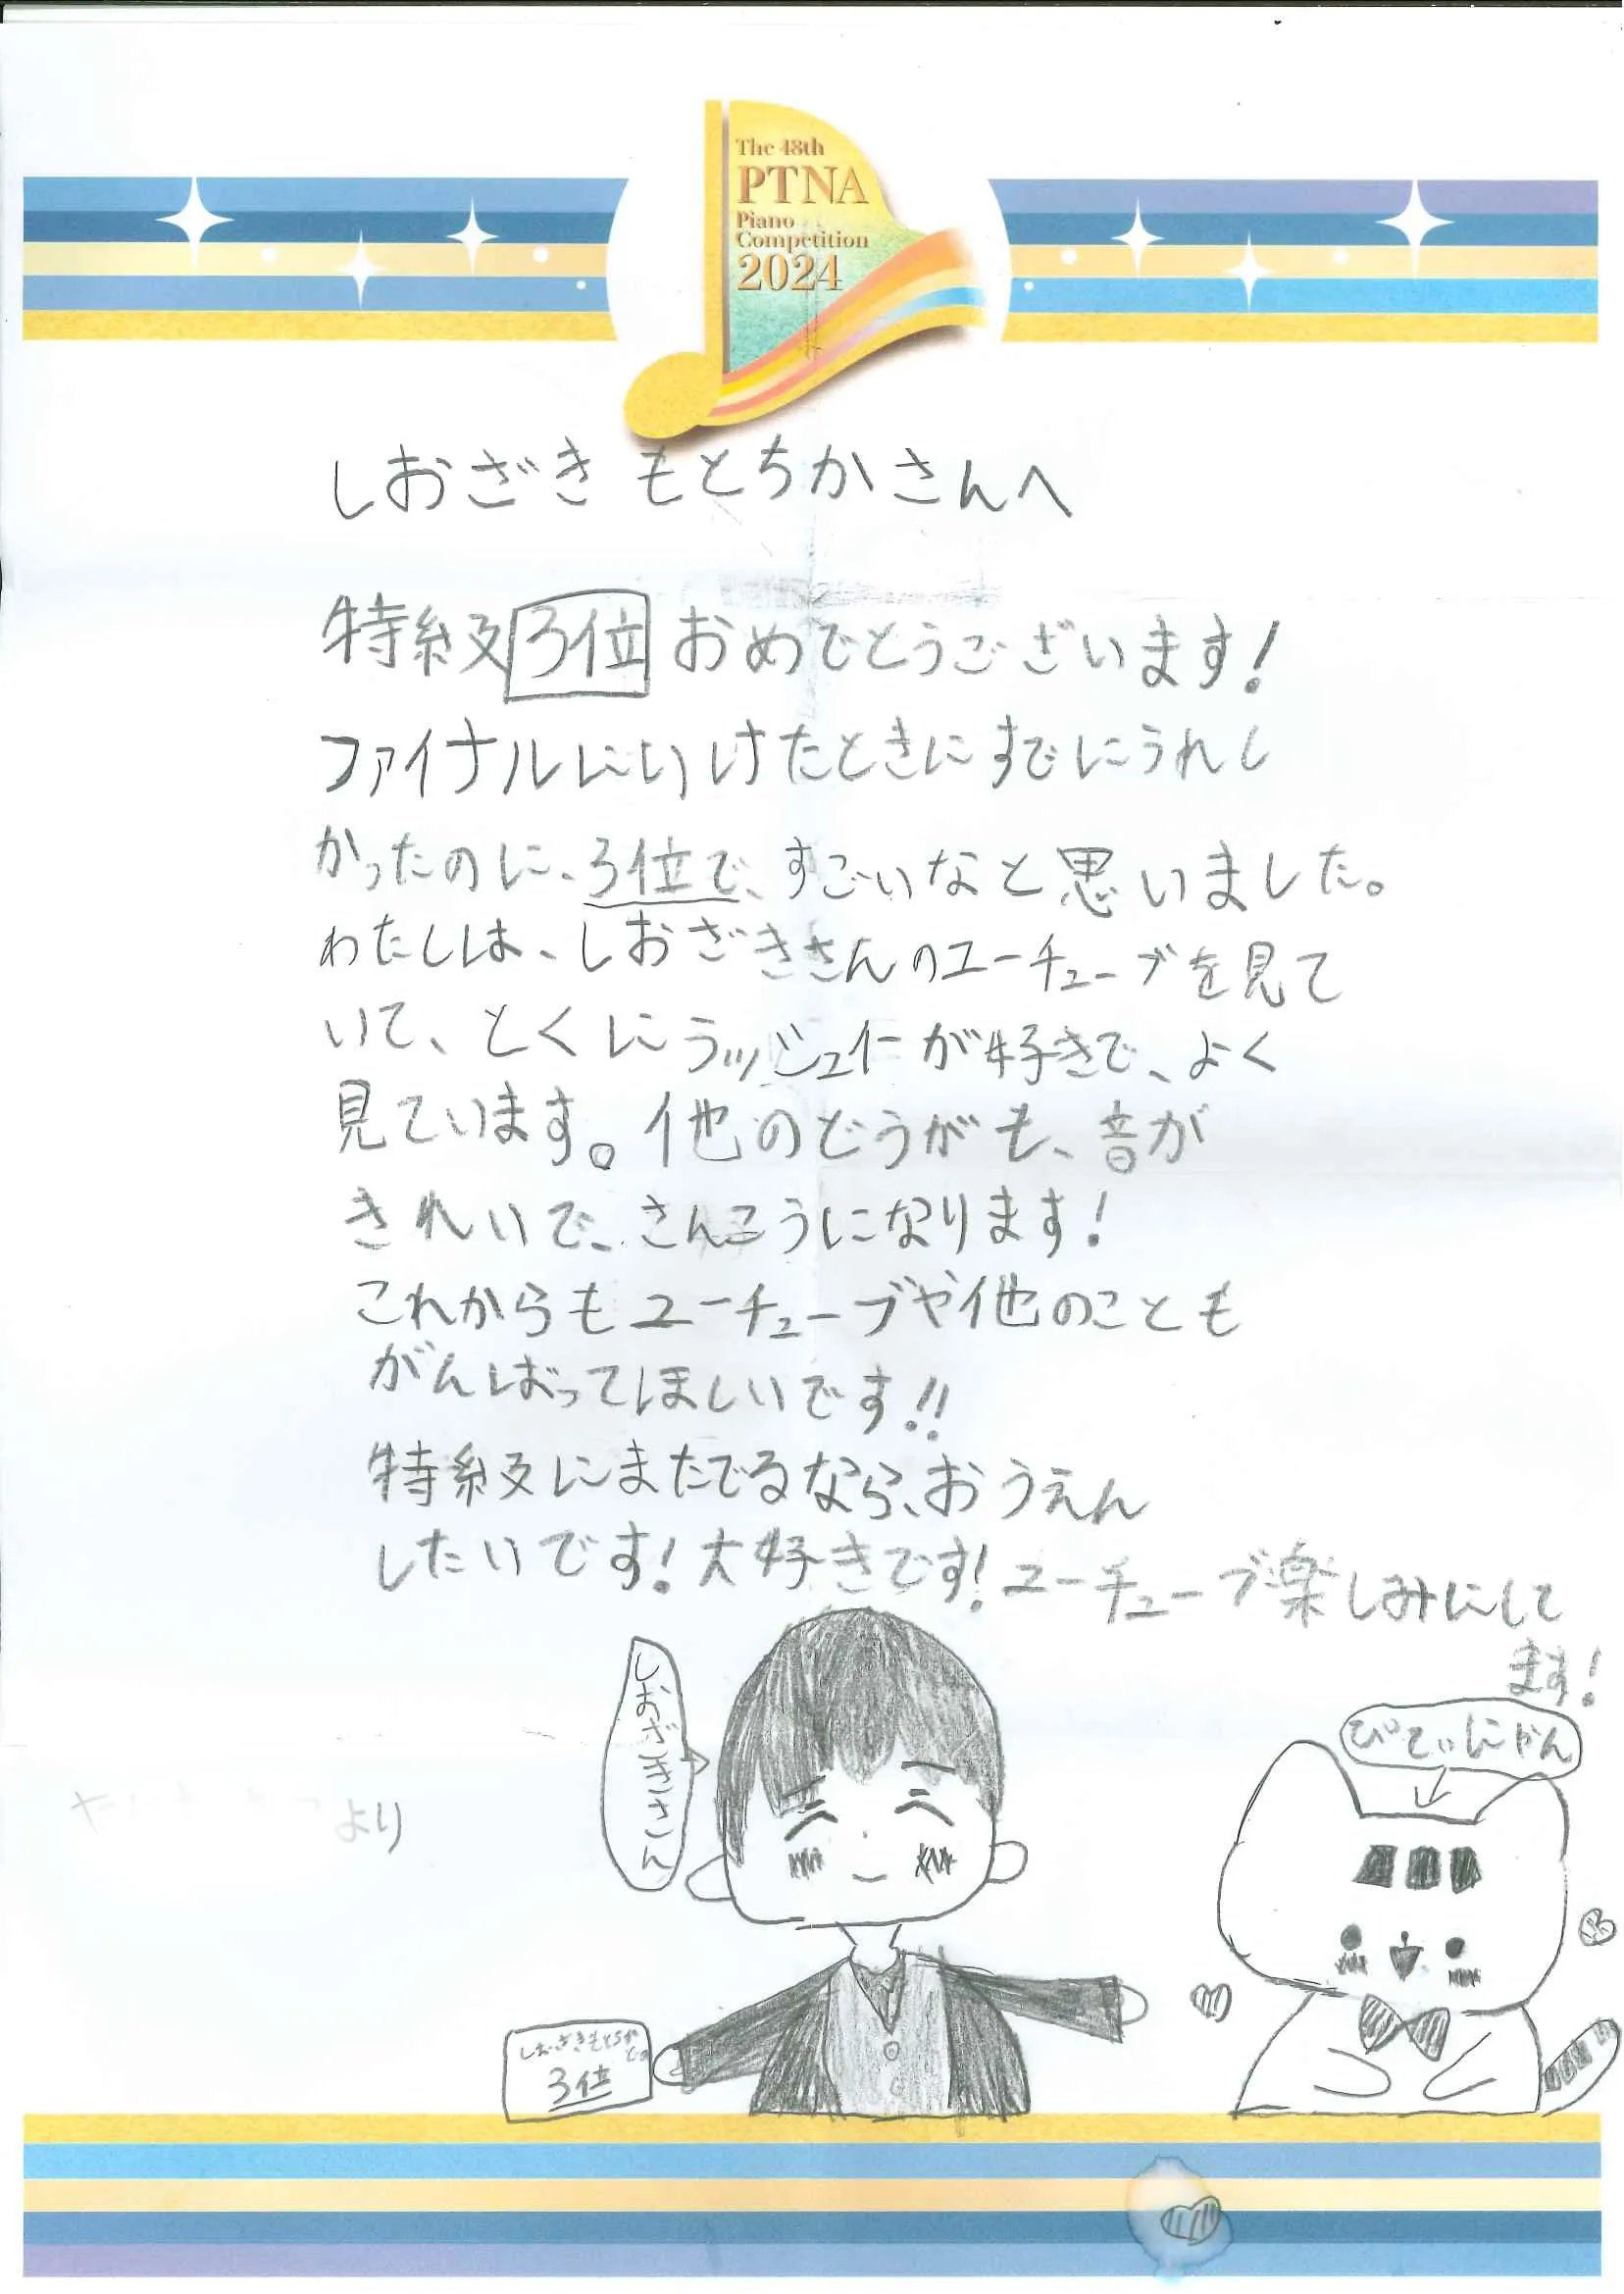 The 48th
PTNA
Piano
Competition
2024
しおざき もとちかさんへ
特級3位おめでとうございます!
ファイナルにいけたときにすでにうれし
かったのに、3位で、すごいなと思いました。
わたしは、しおざきさんのユーチューブを見て
いて、とくにラッシュイーが好きで、よく
見ています。他のどうがも、音が
きれいで、さんこうになります!
これからもユーチューブや他のことも
がんばってほしいです!!
特級にまたでるなら、おうえん
したいです!大好きです!ユーチューブ楽しみにして
ます!
しおざきさん
ぴてぃにゃん
より
しおざきもとちか
3位